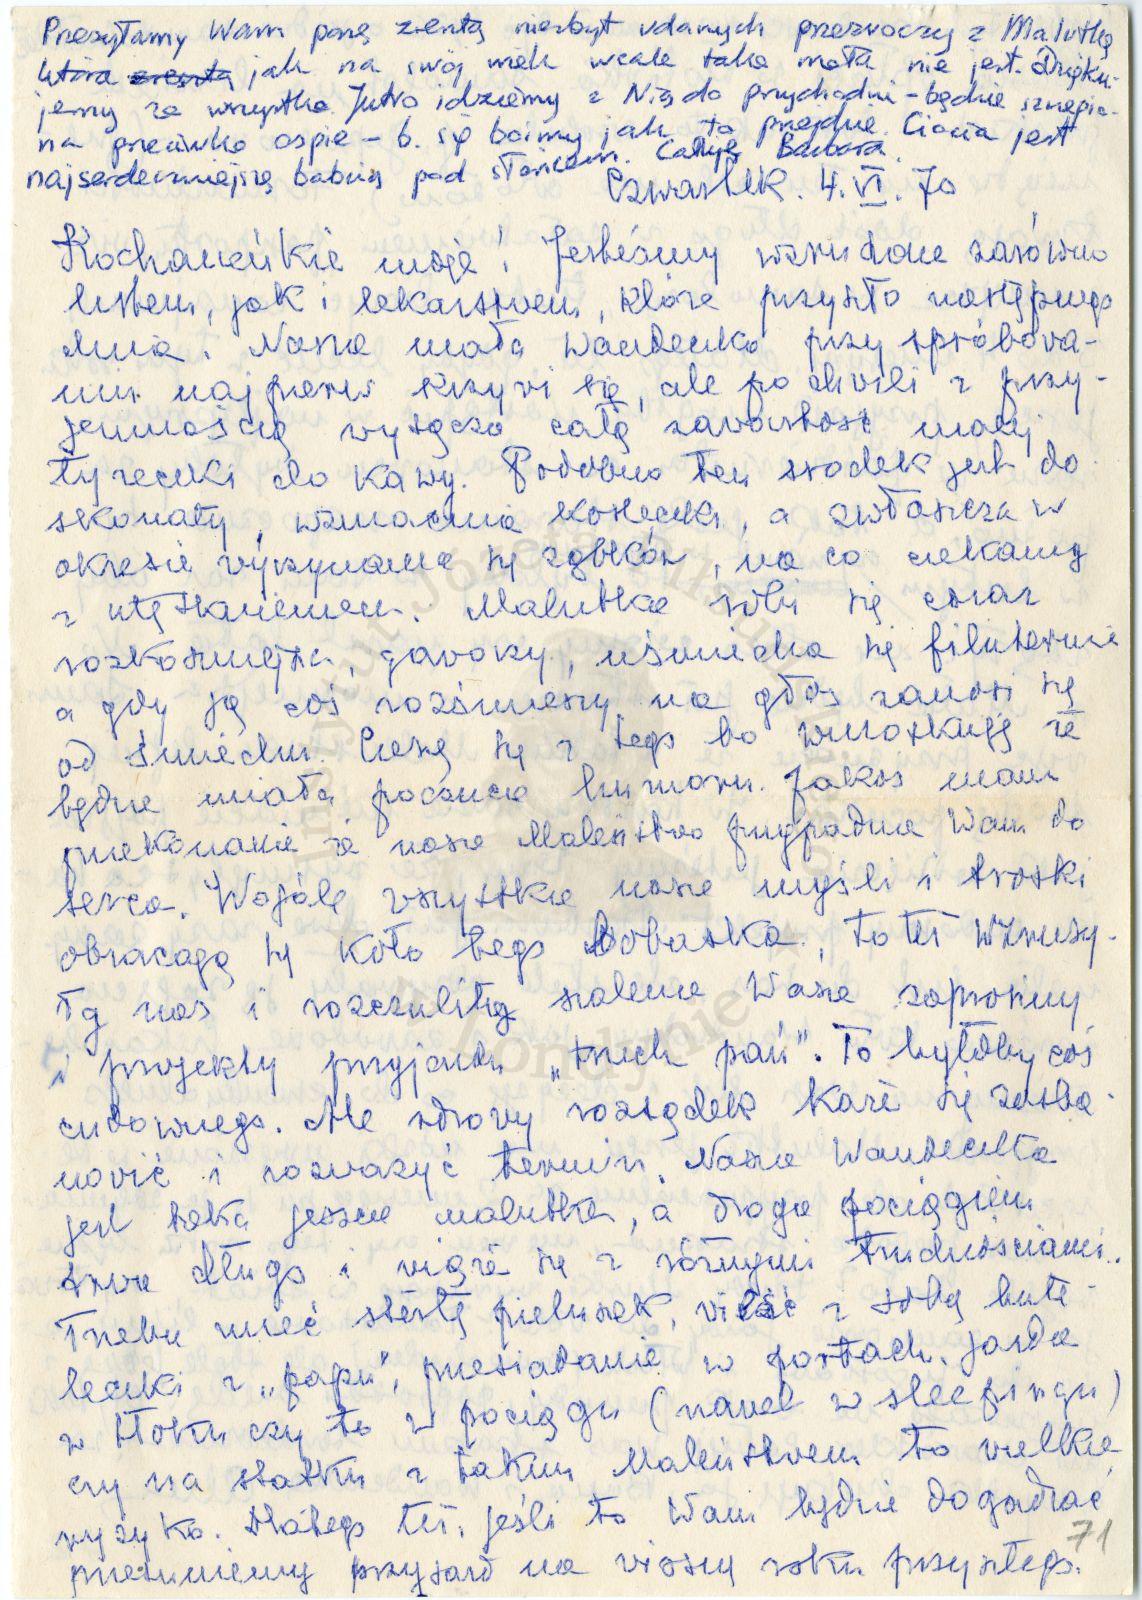 Przesyłamy Wam parę zresztą niezbyt udanych przezroczy z Malutką
która zresztą jak na swój wiek wcale taka mała nie jest. Dzięku-
jemy za wszystko. Jutro idziemy z Nią do przychodni – będzie szczepio-
na przeciwko ospie – b. się boimy jak to przejdzie. Ciocia jest
najserdeczniejszą babcią pod słońcem. Całuję Barbara.
Czwartek. 4.VI.70
Kochanieńkie moje! Jesteśmy wzruszone zarówno
listem, jak i lekarstwem, które przyszło następnego
dnia. Nasza mała Wandeczka przy spróbowa-
niu najpierw krzywi się, ale po chwili z przy-
jemnością wysącza całą zawartość małej
łyżeczki do kawy. Podobno ten środek jest do
skonały, wzmacnia kosteczki, a zwłaszcza w
okresie wyrzynania się ząbków, na co czekamy
z utęsknieniem. Malutka robi się coraz
rozkoszniejsza gaworzy, uśmiecha się filuternie
a gdy ją coś rozśmieszy na głos zanosi się
od śmiechu. Cieszę się z tego bo wnioskuję że
będzie miała poczucie humoru. Jakoś mam
przekonanie że nasze Maleństwo przypadnie Wam do
serca. Wogóle wszystkie nasze myśli i troski
obracają się koło tego Bobaska. To też wzruszy-
ły nas i rozczuliły szalenie Wasze zaprosiny
i projekty przyjazdu „trzech pań". To byłoby coś
cudownego. Ale zdrowy rozsądek każe się zasta-
nowić i rozważyć termin. Nasza Wandeczka
jest taka jeszcze malutka, a droga pociągiem
trwa długo i wiąże się z różnymi trudnościami.
Trzeba mieć stertę pieluszek, wieść z sobą bute-
leczki z „papu", przesiadanie w portach, jazda
w tłoku czy to w pociągu (nawet w sleepingu)
czy na statku z takim Maleństwem to wielkie
ryzyko. Dlatego też, jeśli to Wam będzie dogadzać
przesuniemy przyjazd na wiosnę roku przyszłego.
71
Instytut Józefa Piłsudskiego
w Londynie